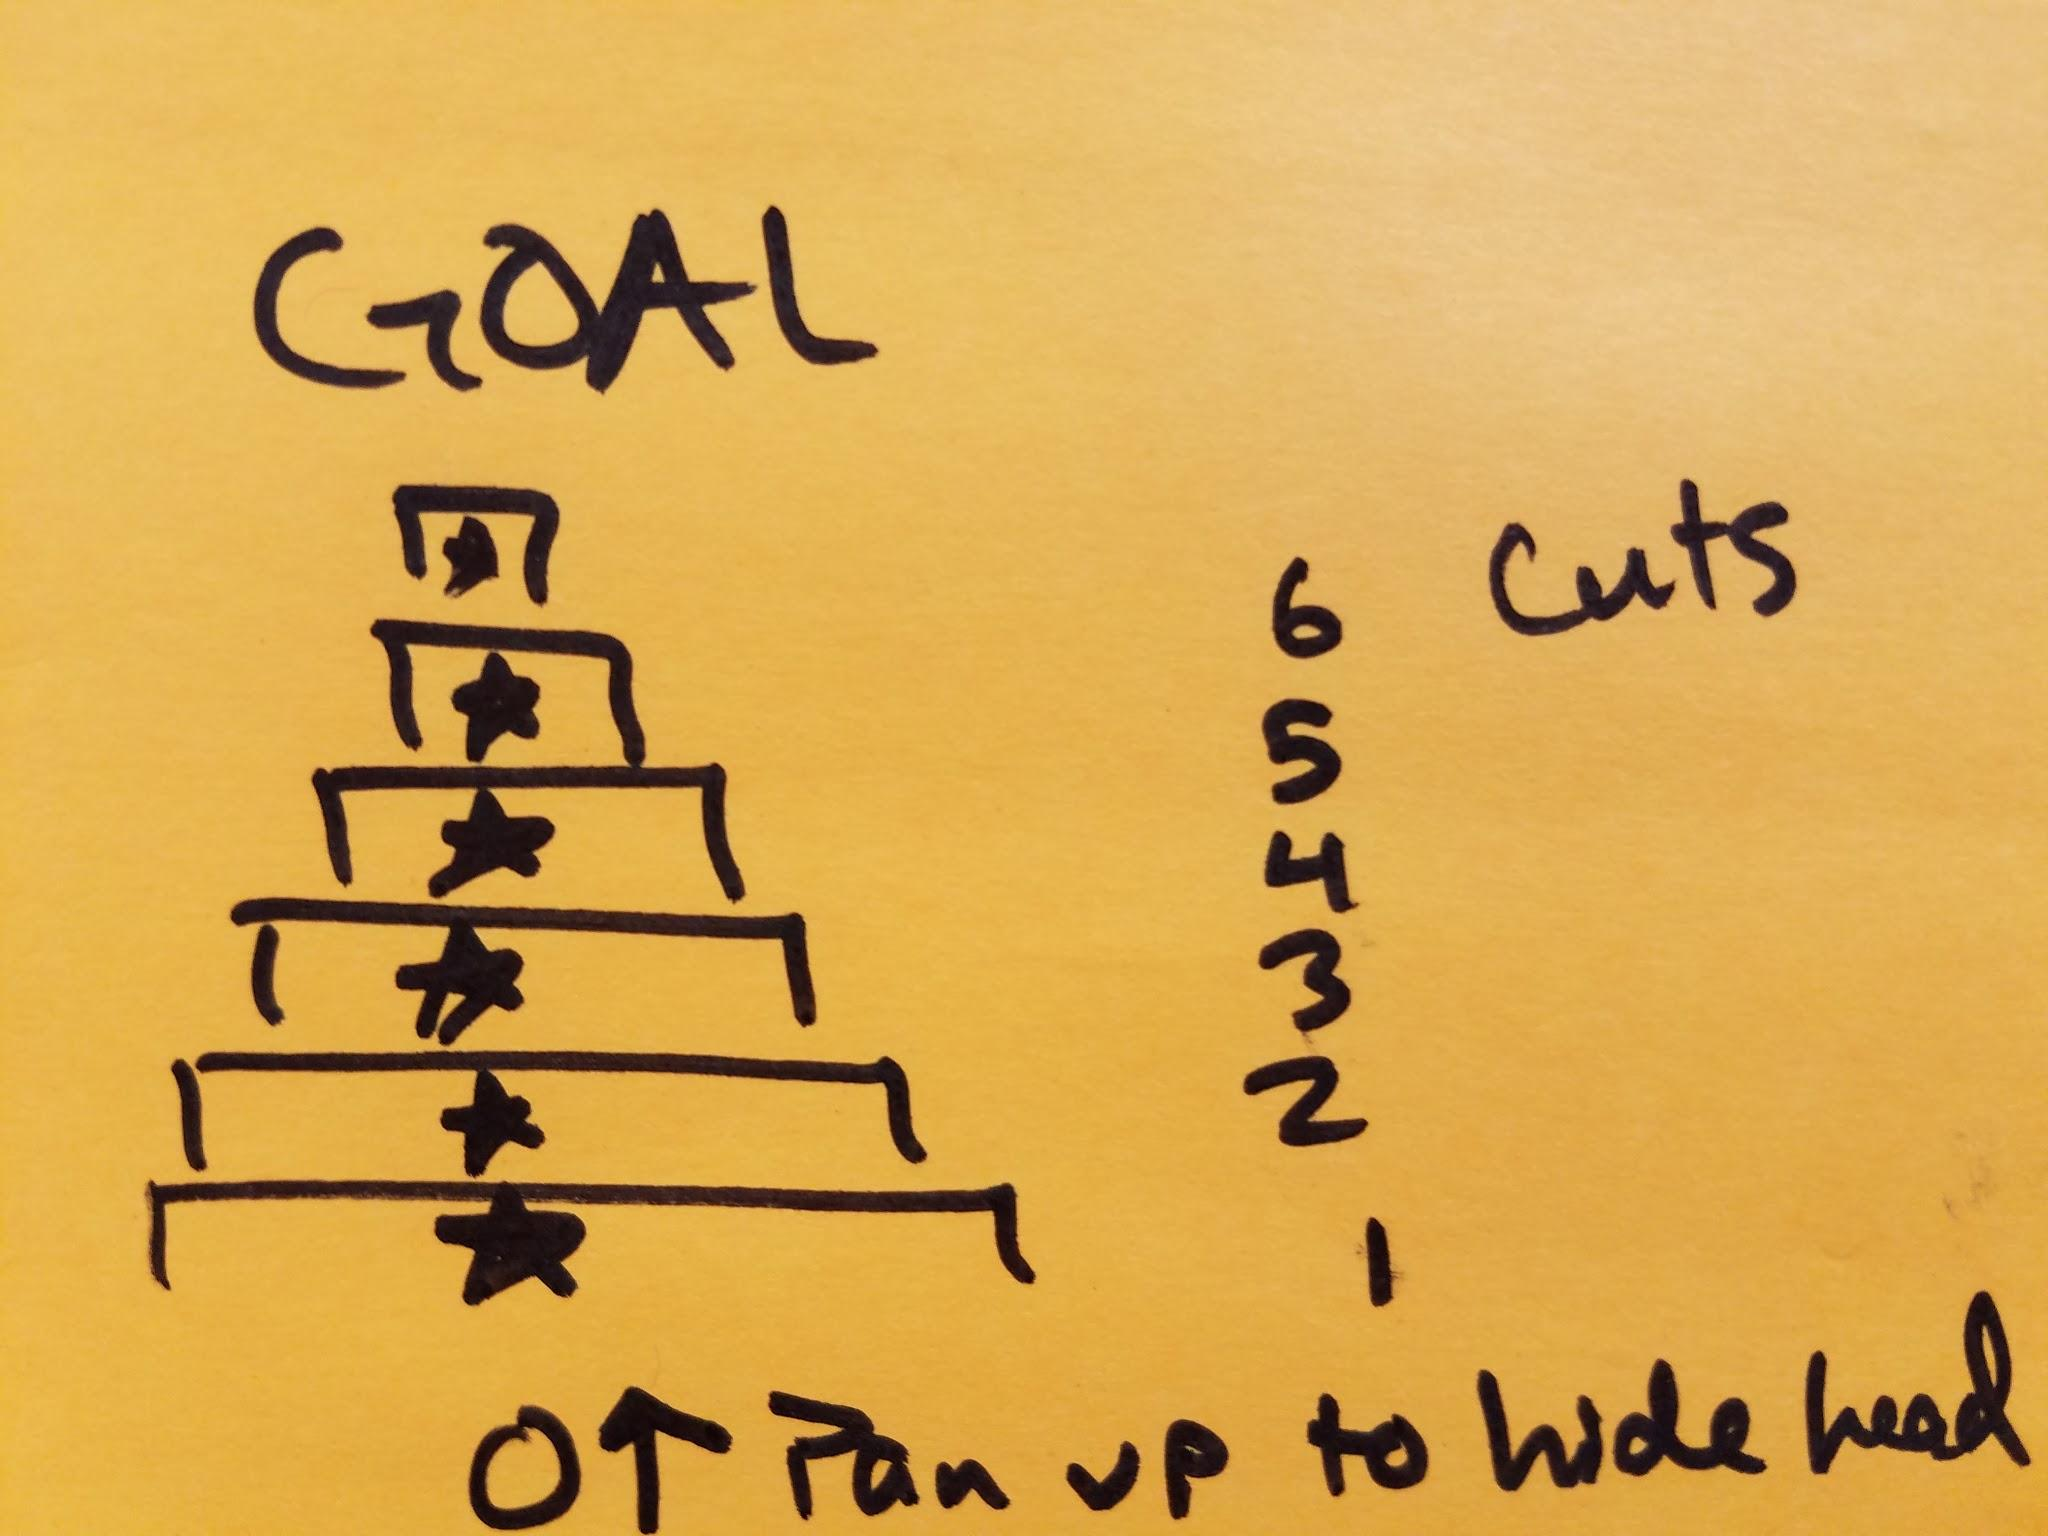 GOAL
6 cuts
5
4
3
2
1
0↑ Pan up to hide head